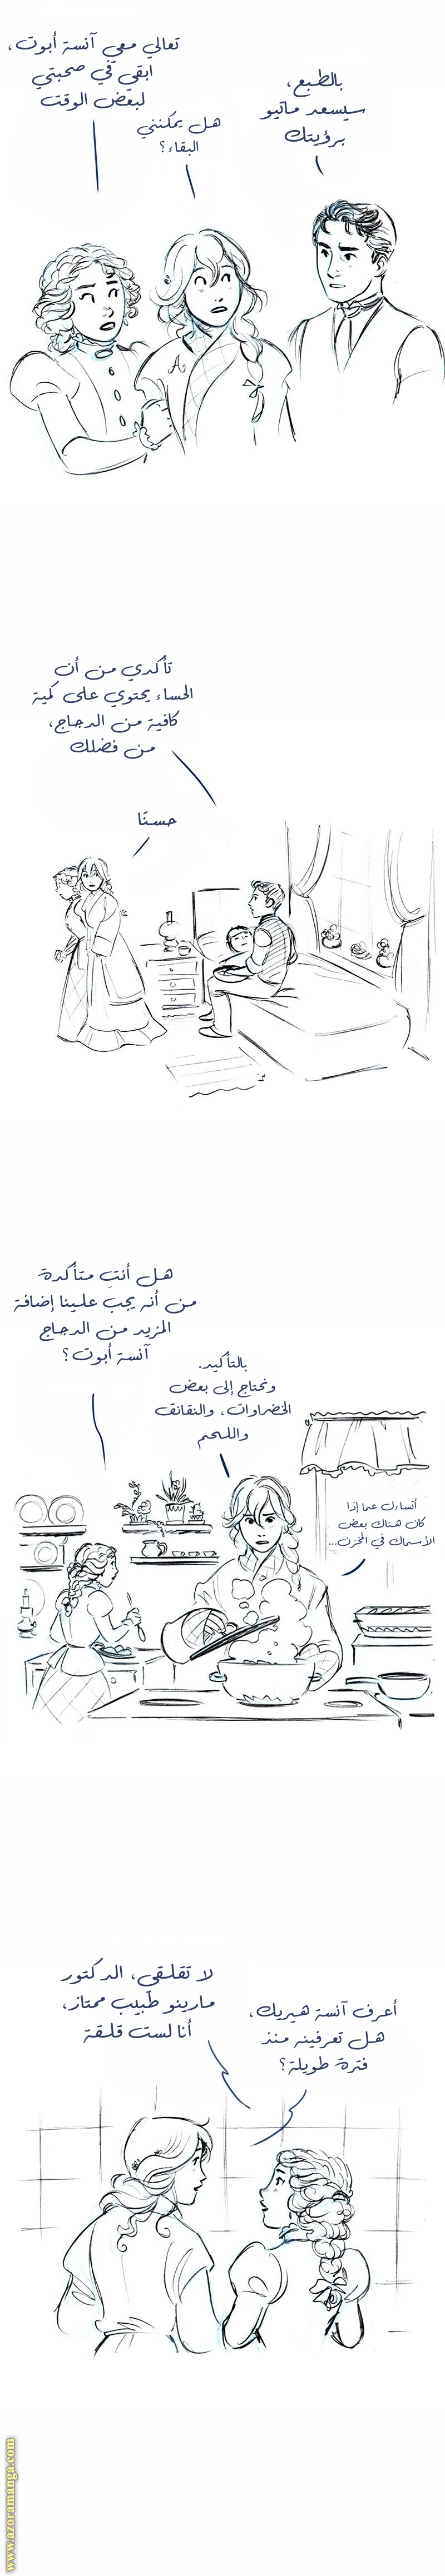 بالطبع،
سيسعد ماتيو
برؤيتك
هل يمكنني
البقاء؟
تعالي معي آنسة أبوت،
ابقي في صحبتي
لبعض الوقت
A
تأكدي من أن
الحساء يحتوي على كمية
كافية من الدجاج،
من فضلك
حسنًا
هل أنتِ متأكدة
من أنه يجب علينا إضافة
المزيد من الدجاج
آنسة أبوت؟
بالتأكيد.
ونحتاج إلى بعض
الخضراوات، والنقانق
واللحم
أتساءل عما إذا
كان هناك بعض
الأسماك في المخزن...
لا تقلقي، الدكتور
مارينو طبيب ممتاز،
أنا لست قلقة
أعرف آنسة هيريك،
هل تعرفينه منذ
فترة طويلة؟
www.azoramanga.com